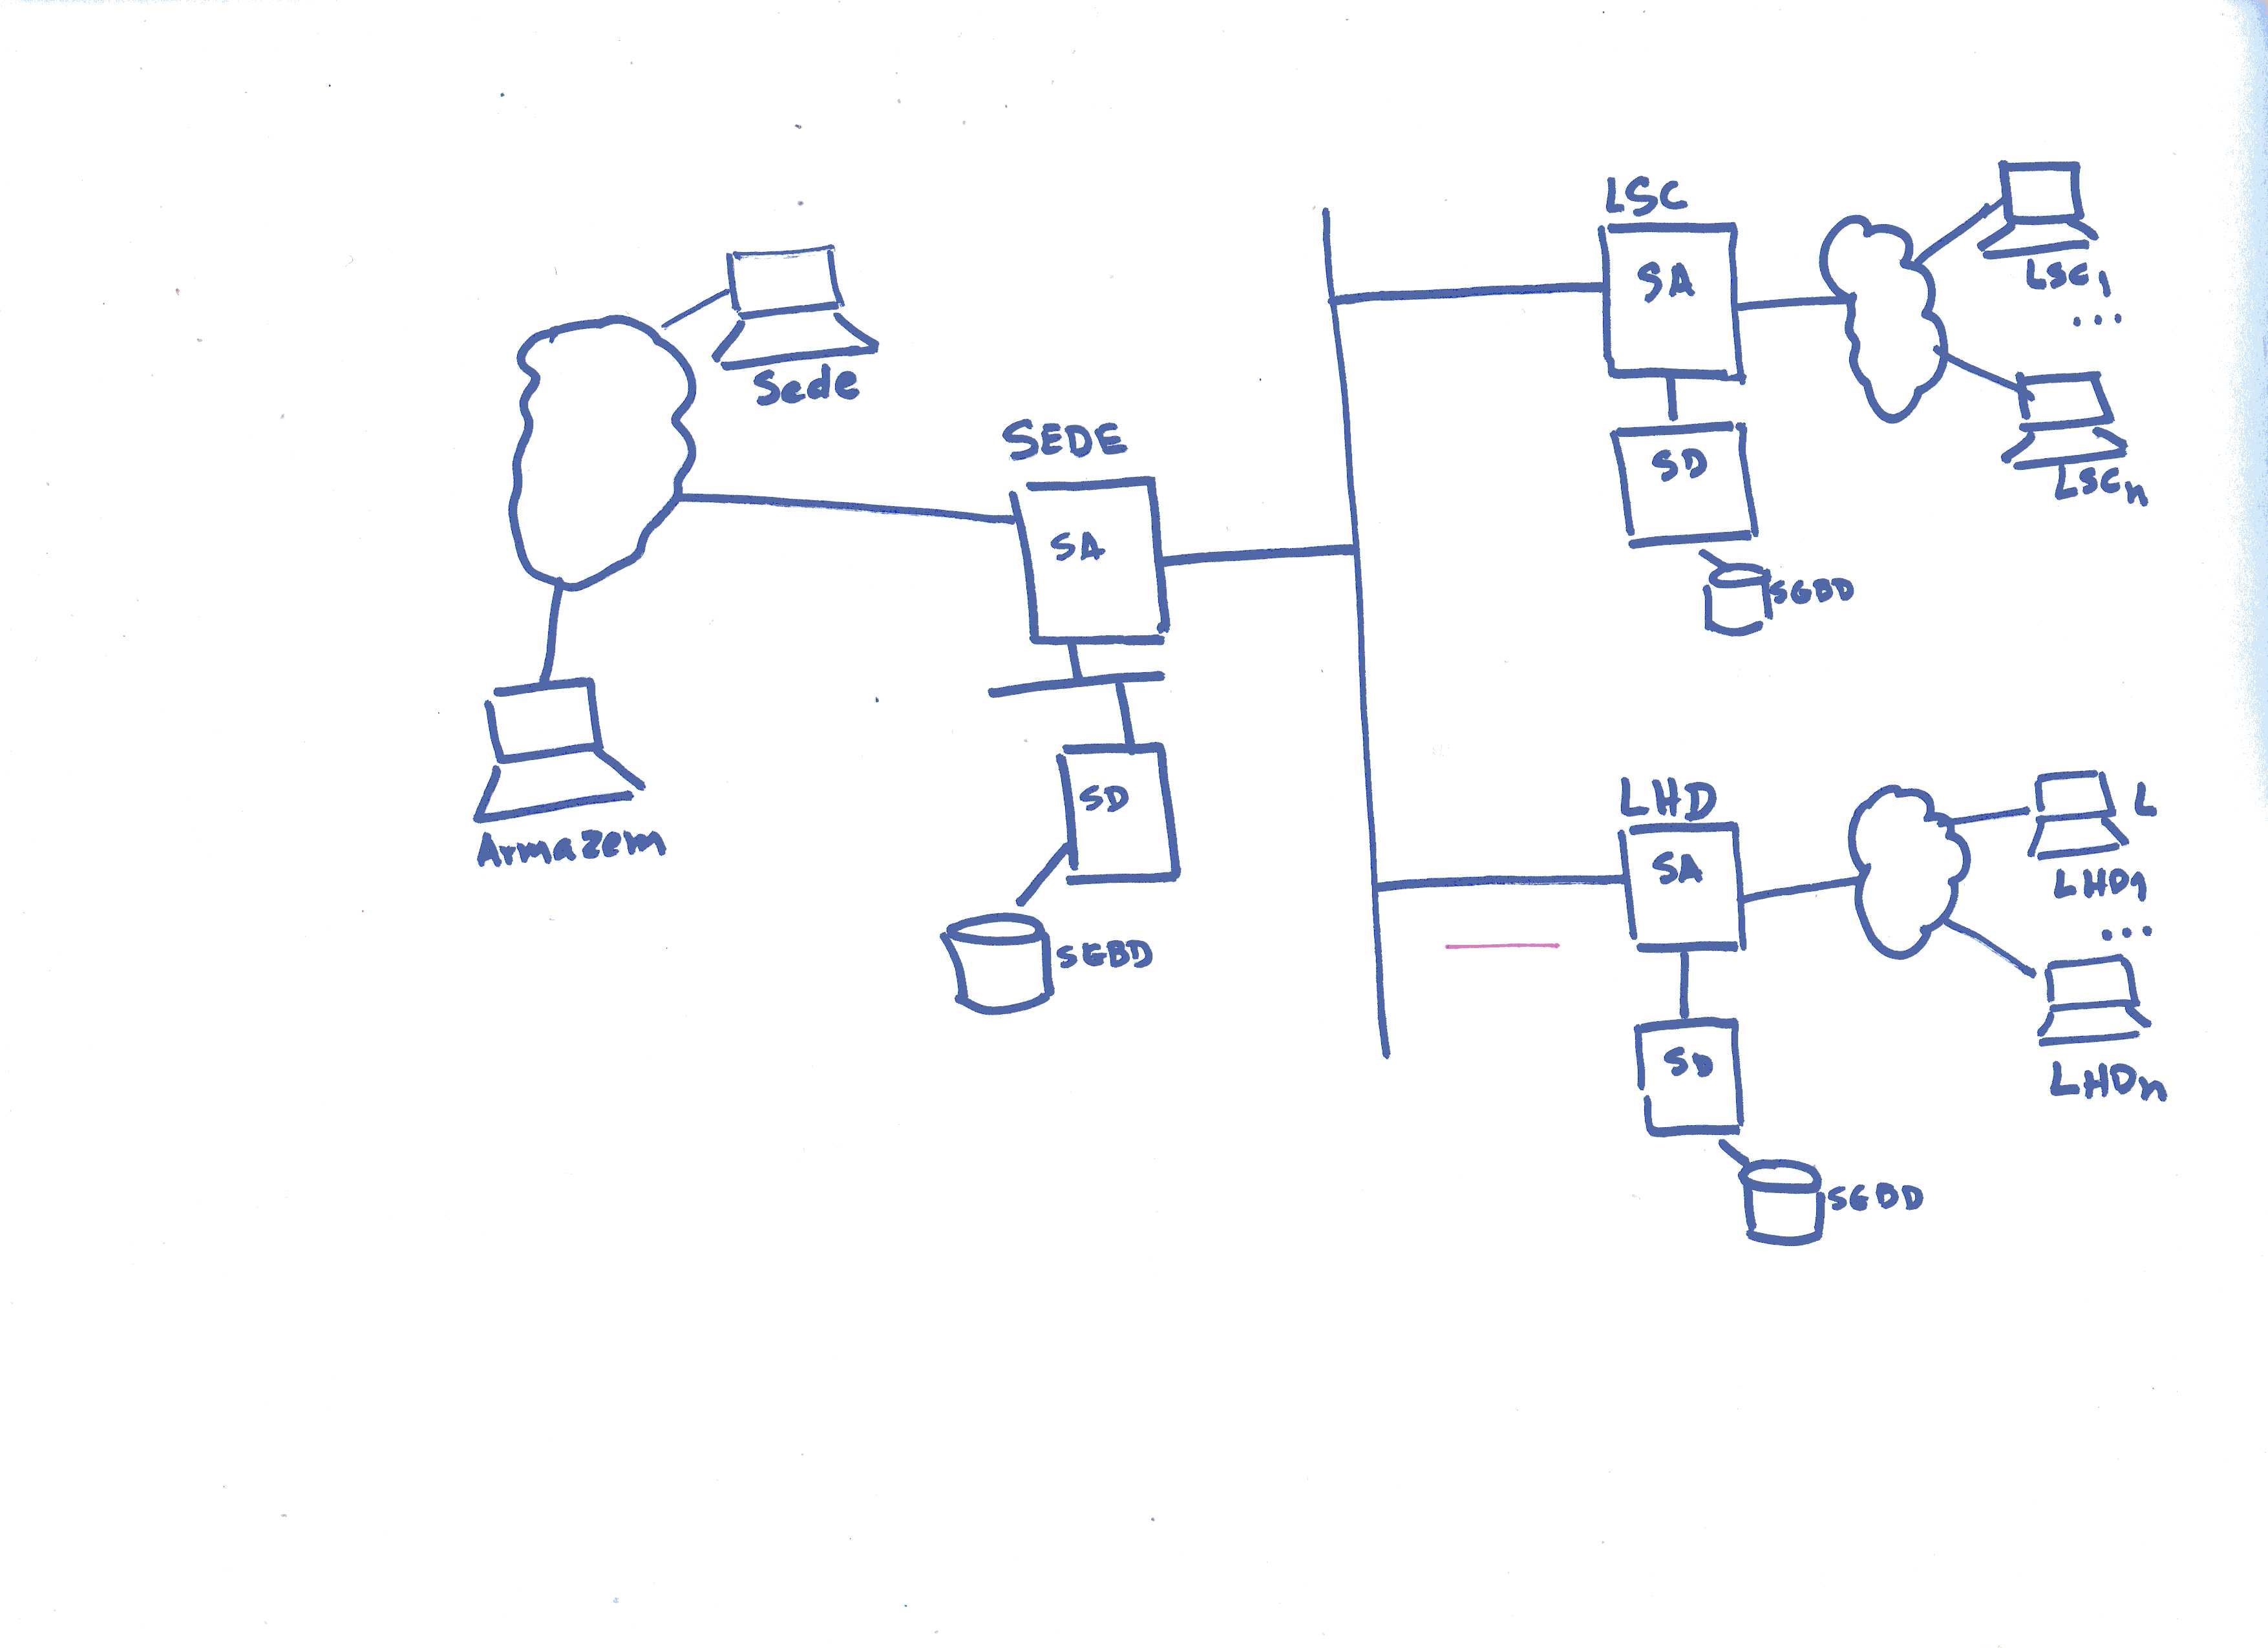 Sede
Armazem
SEDE
SA
SD
SGBD
LSC
SA
SD
SGBD
LSC1
...
LSCn
LHD
SA
SD
SGBD
L
LHD1
...
LHDn